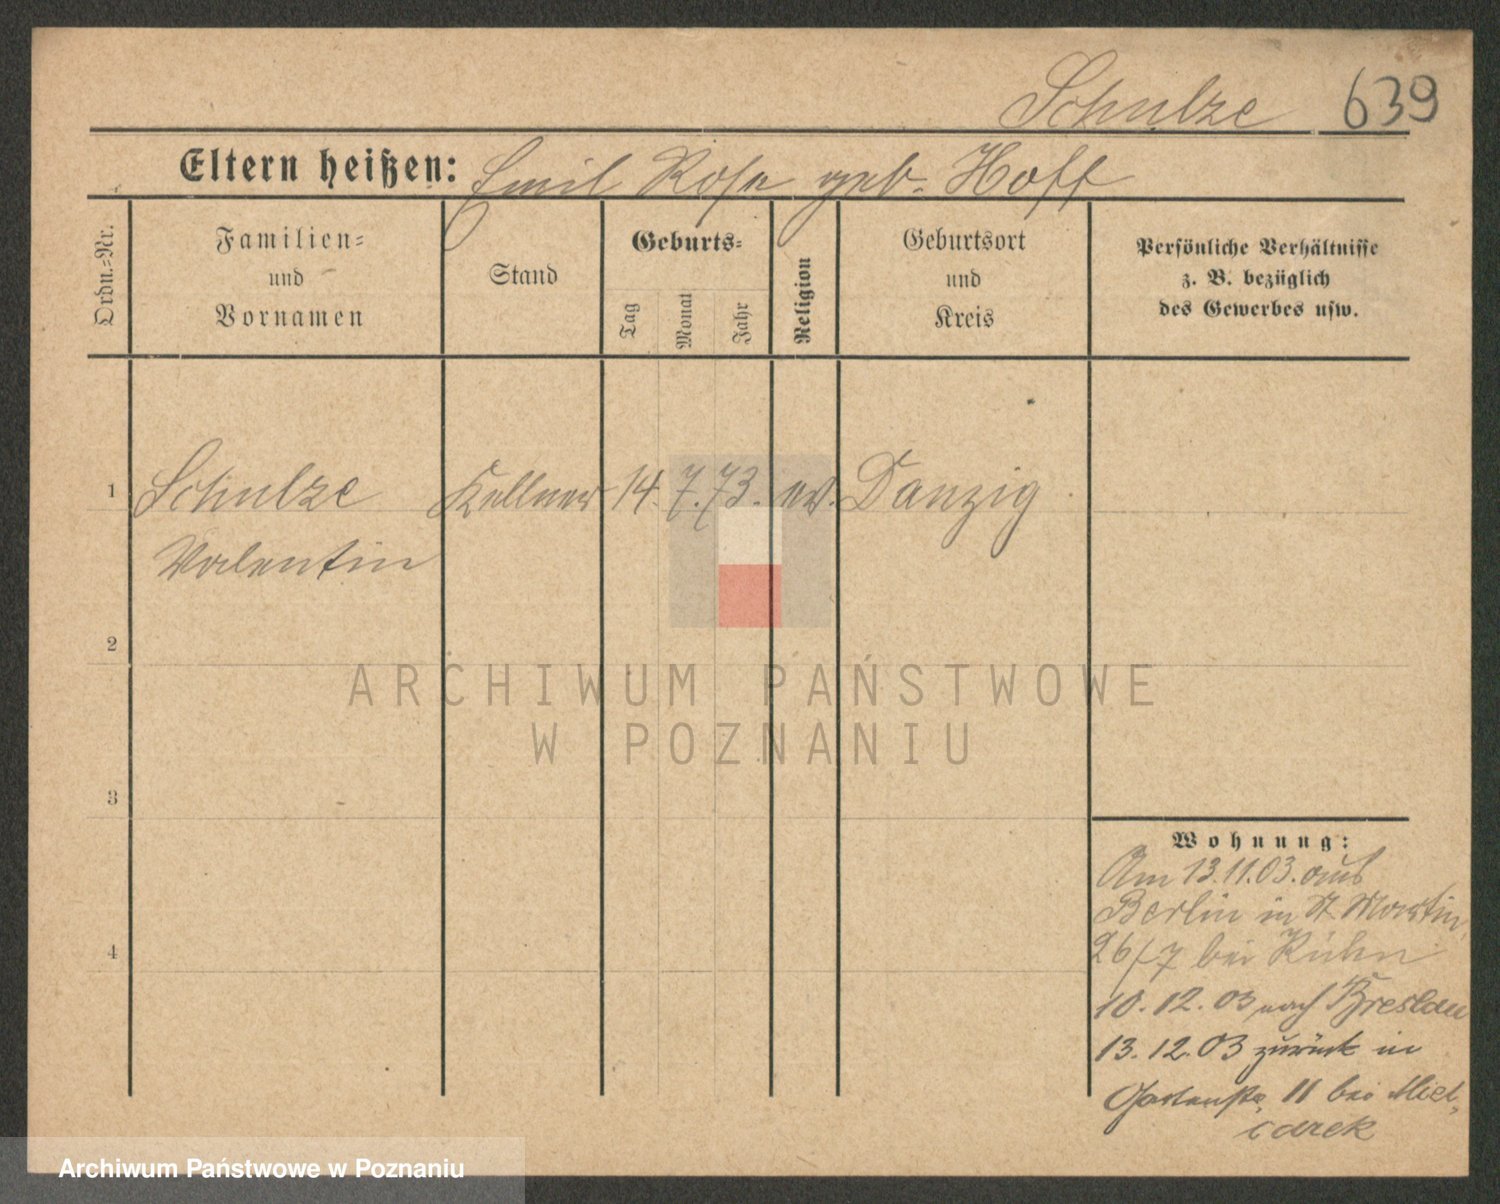 Schulze 639
Eltern heißen: Emil Rosa geb. Hoff
Ordn.-Nr.
Familien-
und
Vornamen
Stand
Geburts-
Tag
Monat
Jahr
Religion
Geburtsort
und
Kreis
Persönliche Verhältnisse
z. B. bezüglich
des Gewerbes usw.
1 Schulze Kellner 14. 7. 73. ev. Danzig
Valentin
2
3
4
Wohnung:
Am 13.11.03. aus
Berlin in St. Martin
26/7 bei Kuhn
10.12.03 nach Breslau
13.12.03 zurück in
Gartenstr. 11 bei Miel-
carek
ARCHIWUM PAŃSTWOWE
W POZNANIU
Archiwum Państwowe w Poznaniu